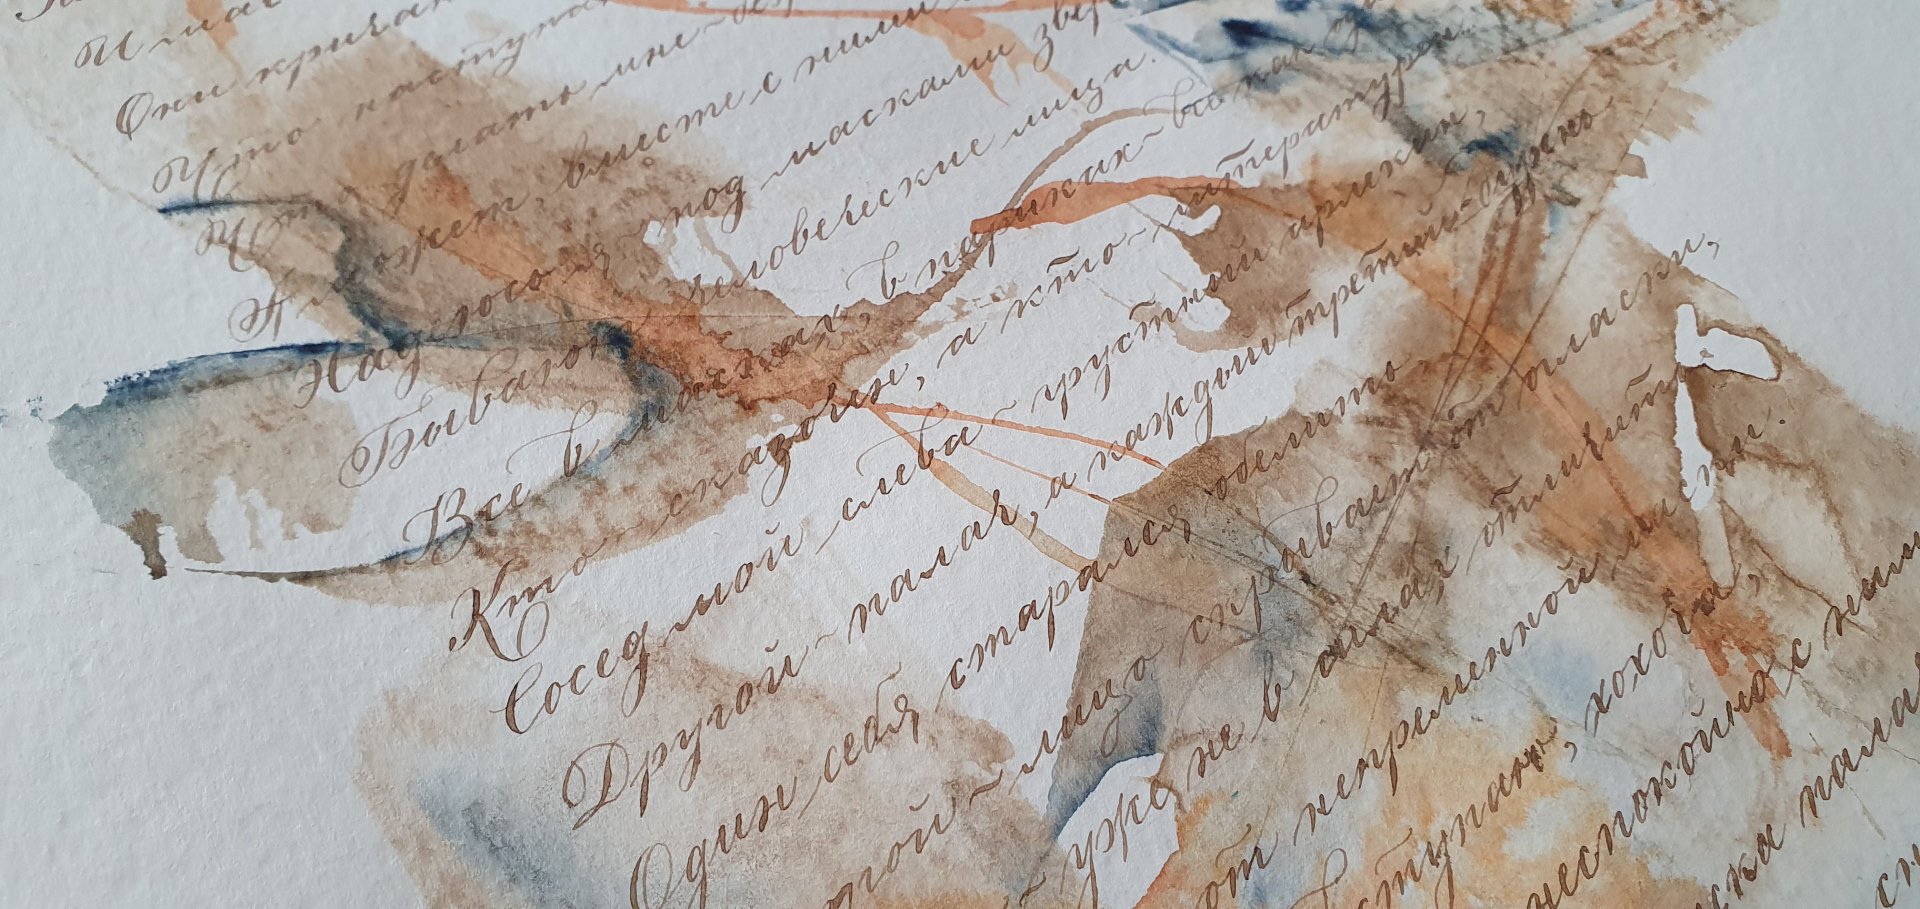 И мас
Они кричат
Что наступаю
Что делать мне-
А может, вместе с ними
Надеюсь я под масками звер
Бывают человеческие лица.
Все в масках, в париках- все как од
Кто- сказочен, а кто- литературен.
Сосед мой слева- грустный арлекин,
Другой- палач, а каждый третий- дурень
Один себя старался обелить
гой- лицо скрывает от огласки,
- уже не в силах отличить
от непременной маски.
вступаю, хохоча,
неспокойно с ними
ска пала
сн